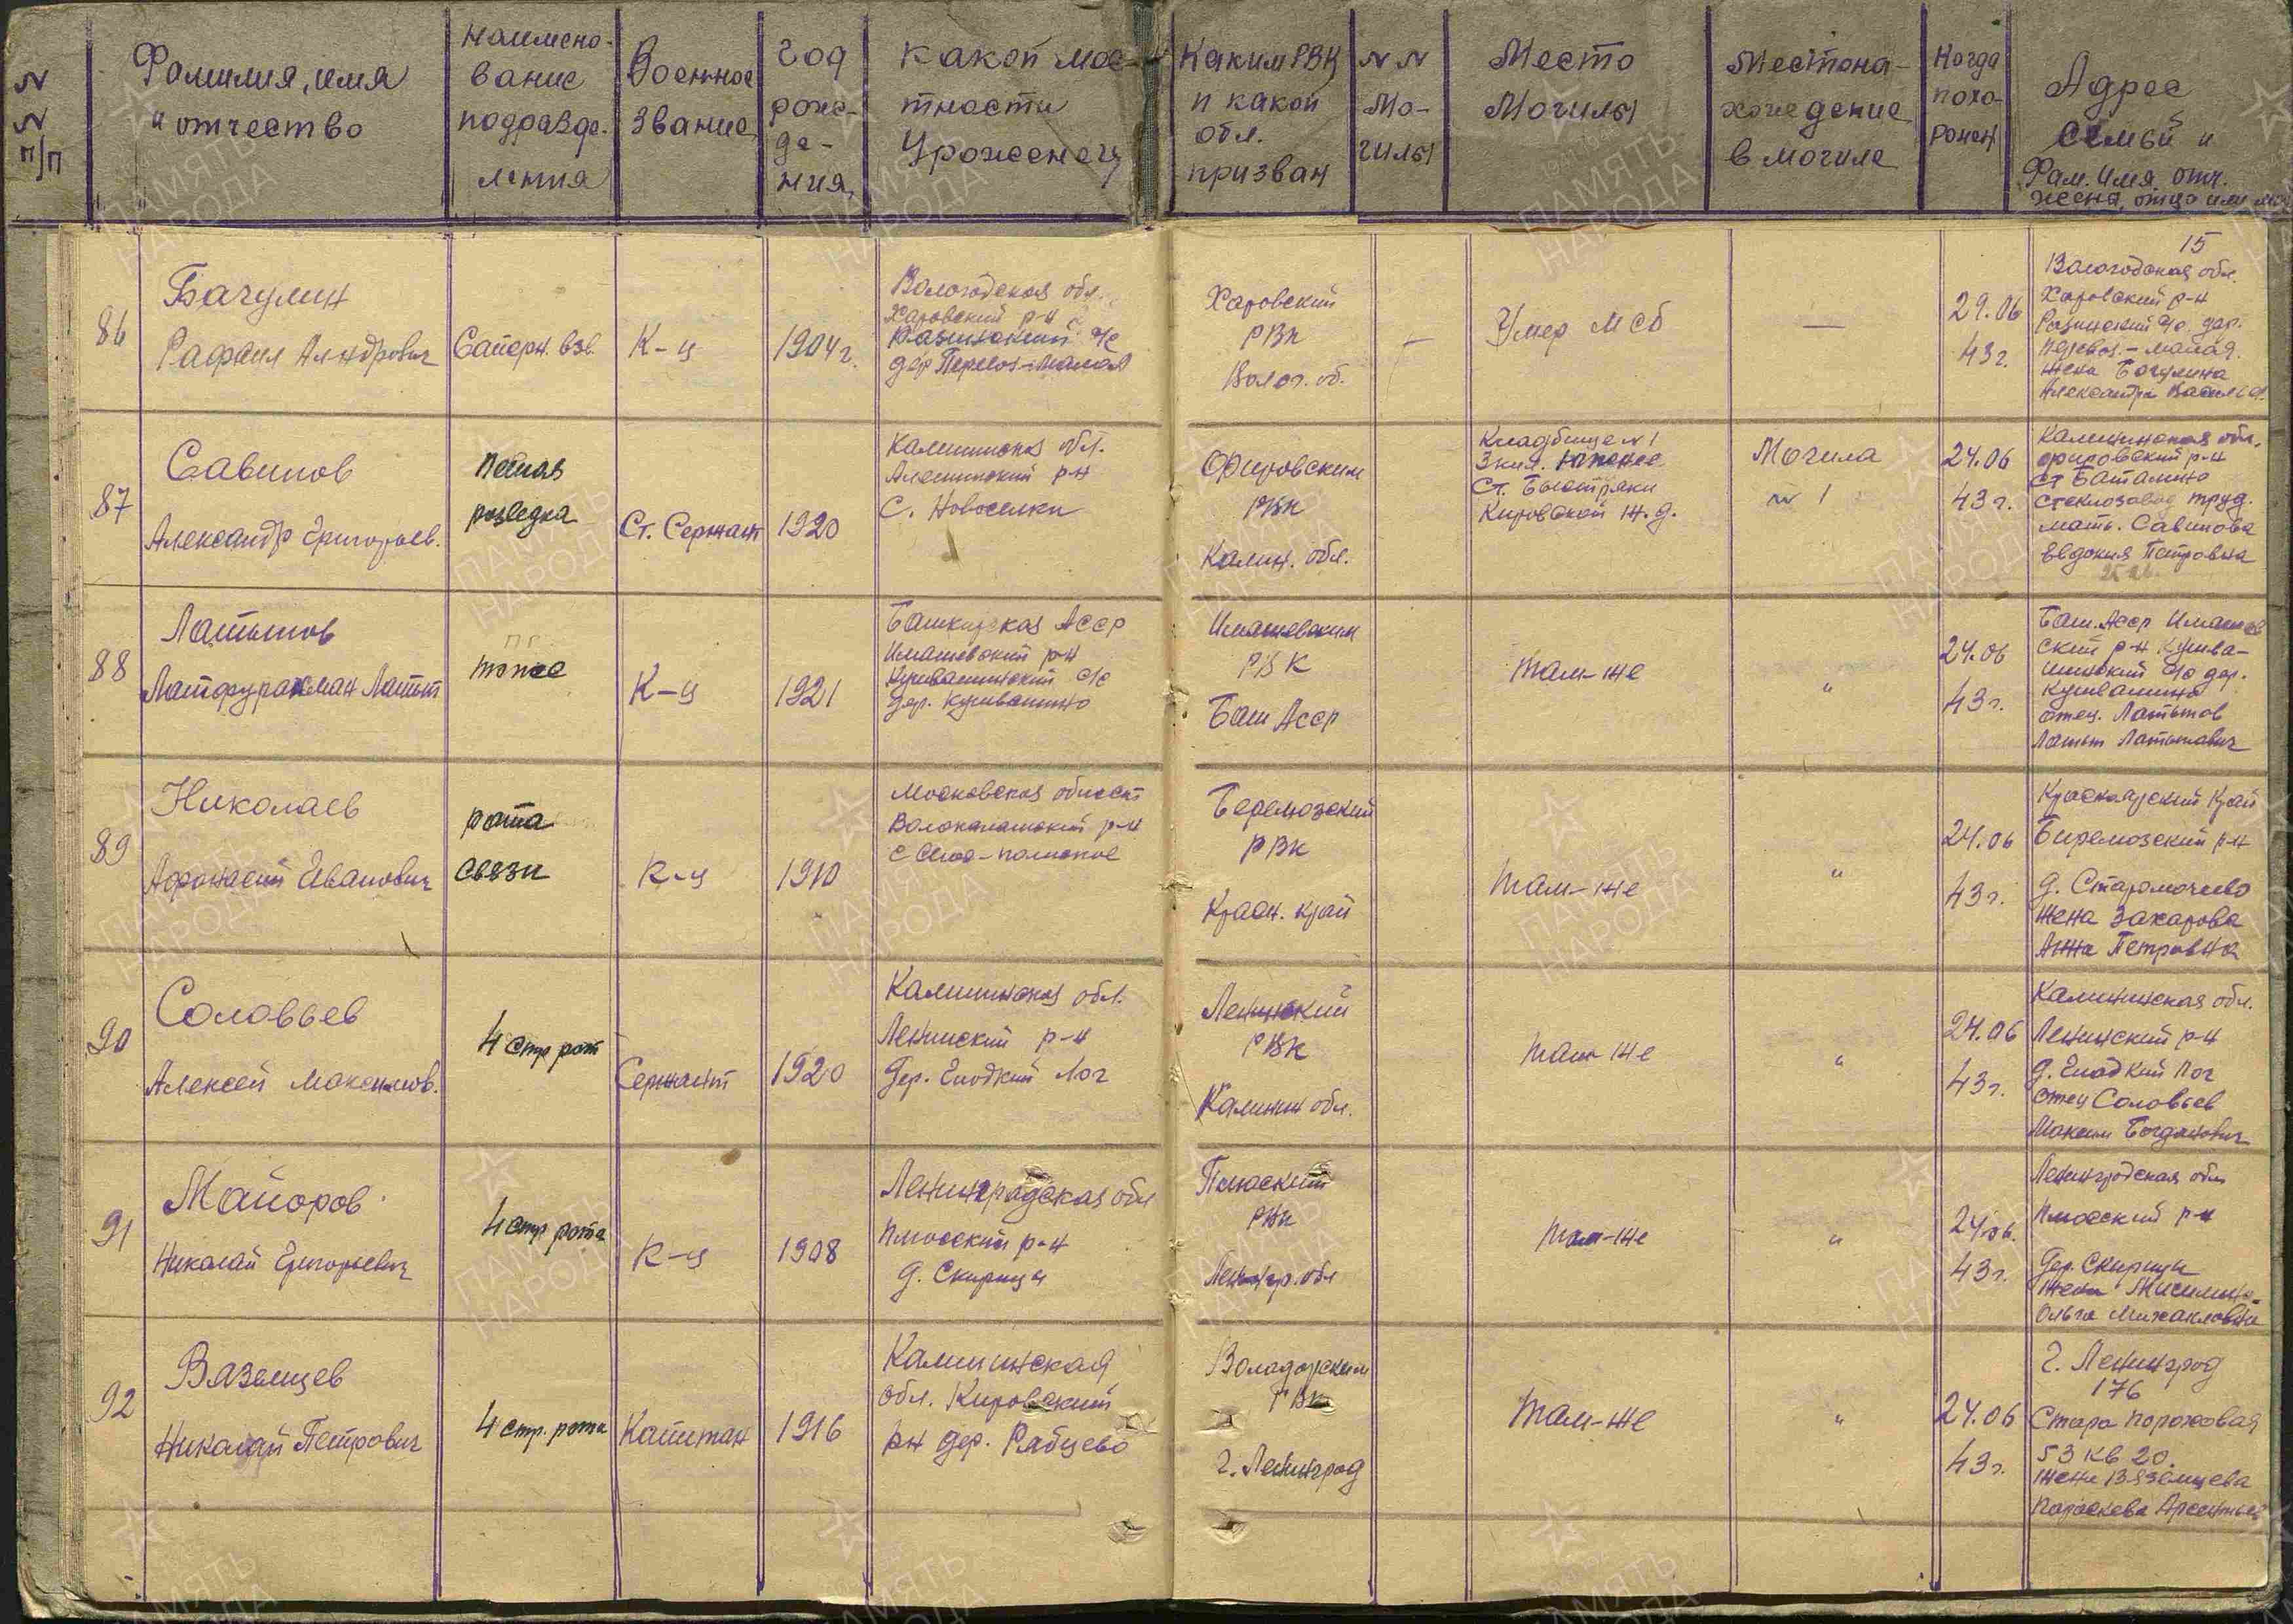 N N п/п
Фамилия, имя
и отчество
Наимено-
вание
подразде-
ления
Военное
звание
Год
рожде-
ния
Какой мес-
тности
Уроженец
Каким РВК
и какой
обл.
призван
N N
Мо-
гилы
Место
Могилы
Местона-
хождение
в могиле
Когда
похо-
ронен
Адрес
семьи и
Фам. имя отч.
жена, отца или
15
86
Бачулин
Рафаил Алндрович
Саперн. взв.
К-ц
1904 г.
Вологодская обл.
Харовский р-н
Разинский с/с
дер Перевоз-Малая
Харовский
РВК
Волог. об.
—
Умер МСБ
—
29.06
43 г.
Вологодская обл.
Харовский р-н
Разинский с/с. дер.
Перевоз.-малая.
жена Бачулина
Александра
87
Савинов
Александр Григорьев.
пешая
разведка
Ст. Сержант
1920
Калининская обл.
р-н
С. Новоселки
Фировским
РВК
Калин. обл.
Кладбище N 1
3 кил.
Ст. Быстряки
Кировской ж.д.
Могила
N 1
24.06
43 г.
Калининская обл.
Фировский р-н
ст Баталино
стеклозавод труд.
мать. Савинова
Евдокия Петровна
88
Латыпов
Латып
тоже
К-ц
1921
Башкирская Асср
Имашевский р-н
с/с
дер.
Имашевским
РВК
Баш Асср
там-же
"
24.06
43 г.
Баш. Асср Имашев
ский р-н
с/с дер.
отец. Латыпов
Латып Латыпович
89
Николаев
Афонасий Иванович
рота
связи
К-ц
1910
Московская област
Волокаламский р-н
с
РВК
Красн. край
там-же
"
24.06
43 г.
Красноярский Край
р-н
д.
жена Захарова
Анна Петровна
90
Соловьев
Алексей Максимов.
4 стр рот
Сержант
1920
Калининская обл.
Ленинский р-н
Дер. Глодкий Лог
Ленинский
РВК
Калинин обл.
там-же
"
24.06
43 г.
Калининская обл.
Ленинский р-н
д. Гладкий Лог
отец Соловьев
Максим Богданович
91
Майоров
Николай Григорьевич
4 стр рота
К-ц
1908
Ленинградская обл
Плюский р-н
д. Скирица
Плюский
РВК
Ленингр. обл
там-же
"
24.06.
43 г.
Ленингрдская обл
Плюский р-н
Дер. Скирицы
жена
Ольга Михайловна
92
Вяземцев
Николай Петрович
4 стр. рота
Капитан
1916
Калининская
обл. Кировский
рн дер. Рябцево
РВК
г. Ленинград
там-же
"
24.06
43 г.
г. Ленинград
176
Стара порожовая
53 кв 20.
жена Вяземцева
ПАМЯТЬ
НАРОДА